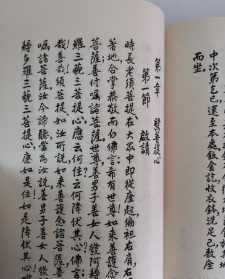 中次第乞已還至本處飯食訖收衣鉢洗足已敷座
而坐
第一章 發菩提心
第一節 啟請
時長老須菩提在大眾中即從座起偏袒右肩右
著地合掌恭敬而白佛言希有世尊如來善護
菩薩善付囑諸菩薩世尊善男子善女人發阿耨
羅三藐三菩提心應云何住云何降伏其心佛言
哉善哉須菩提如汝所說如來善護念諸菩薩善
囑諸菩薩汝今諦聽當為汝說善男子善女人發
耨多羅三藐三菩提心應如是住如是降伏其